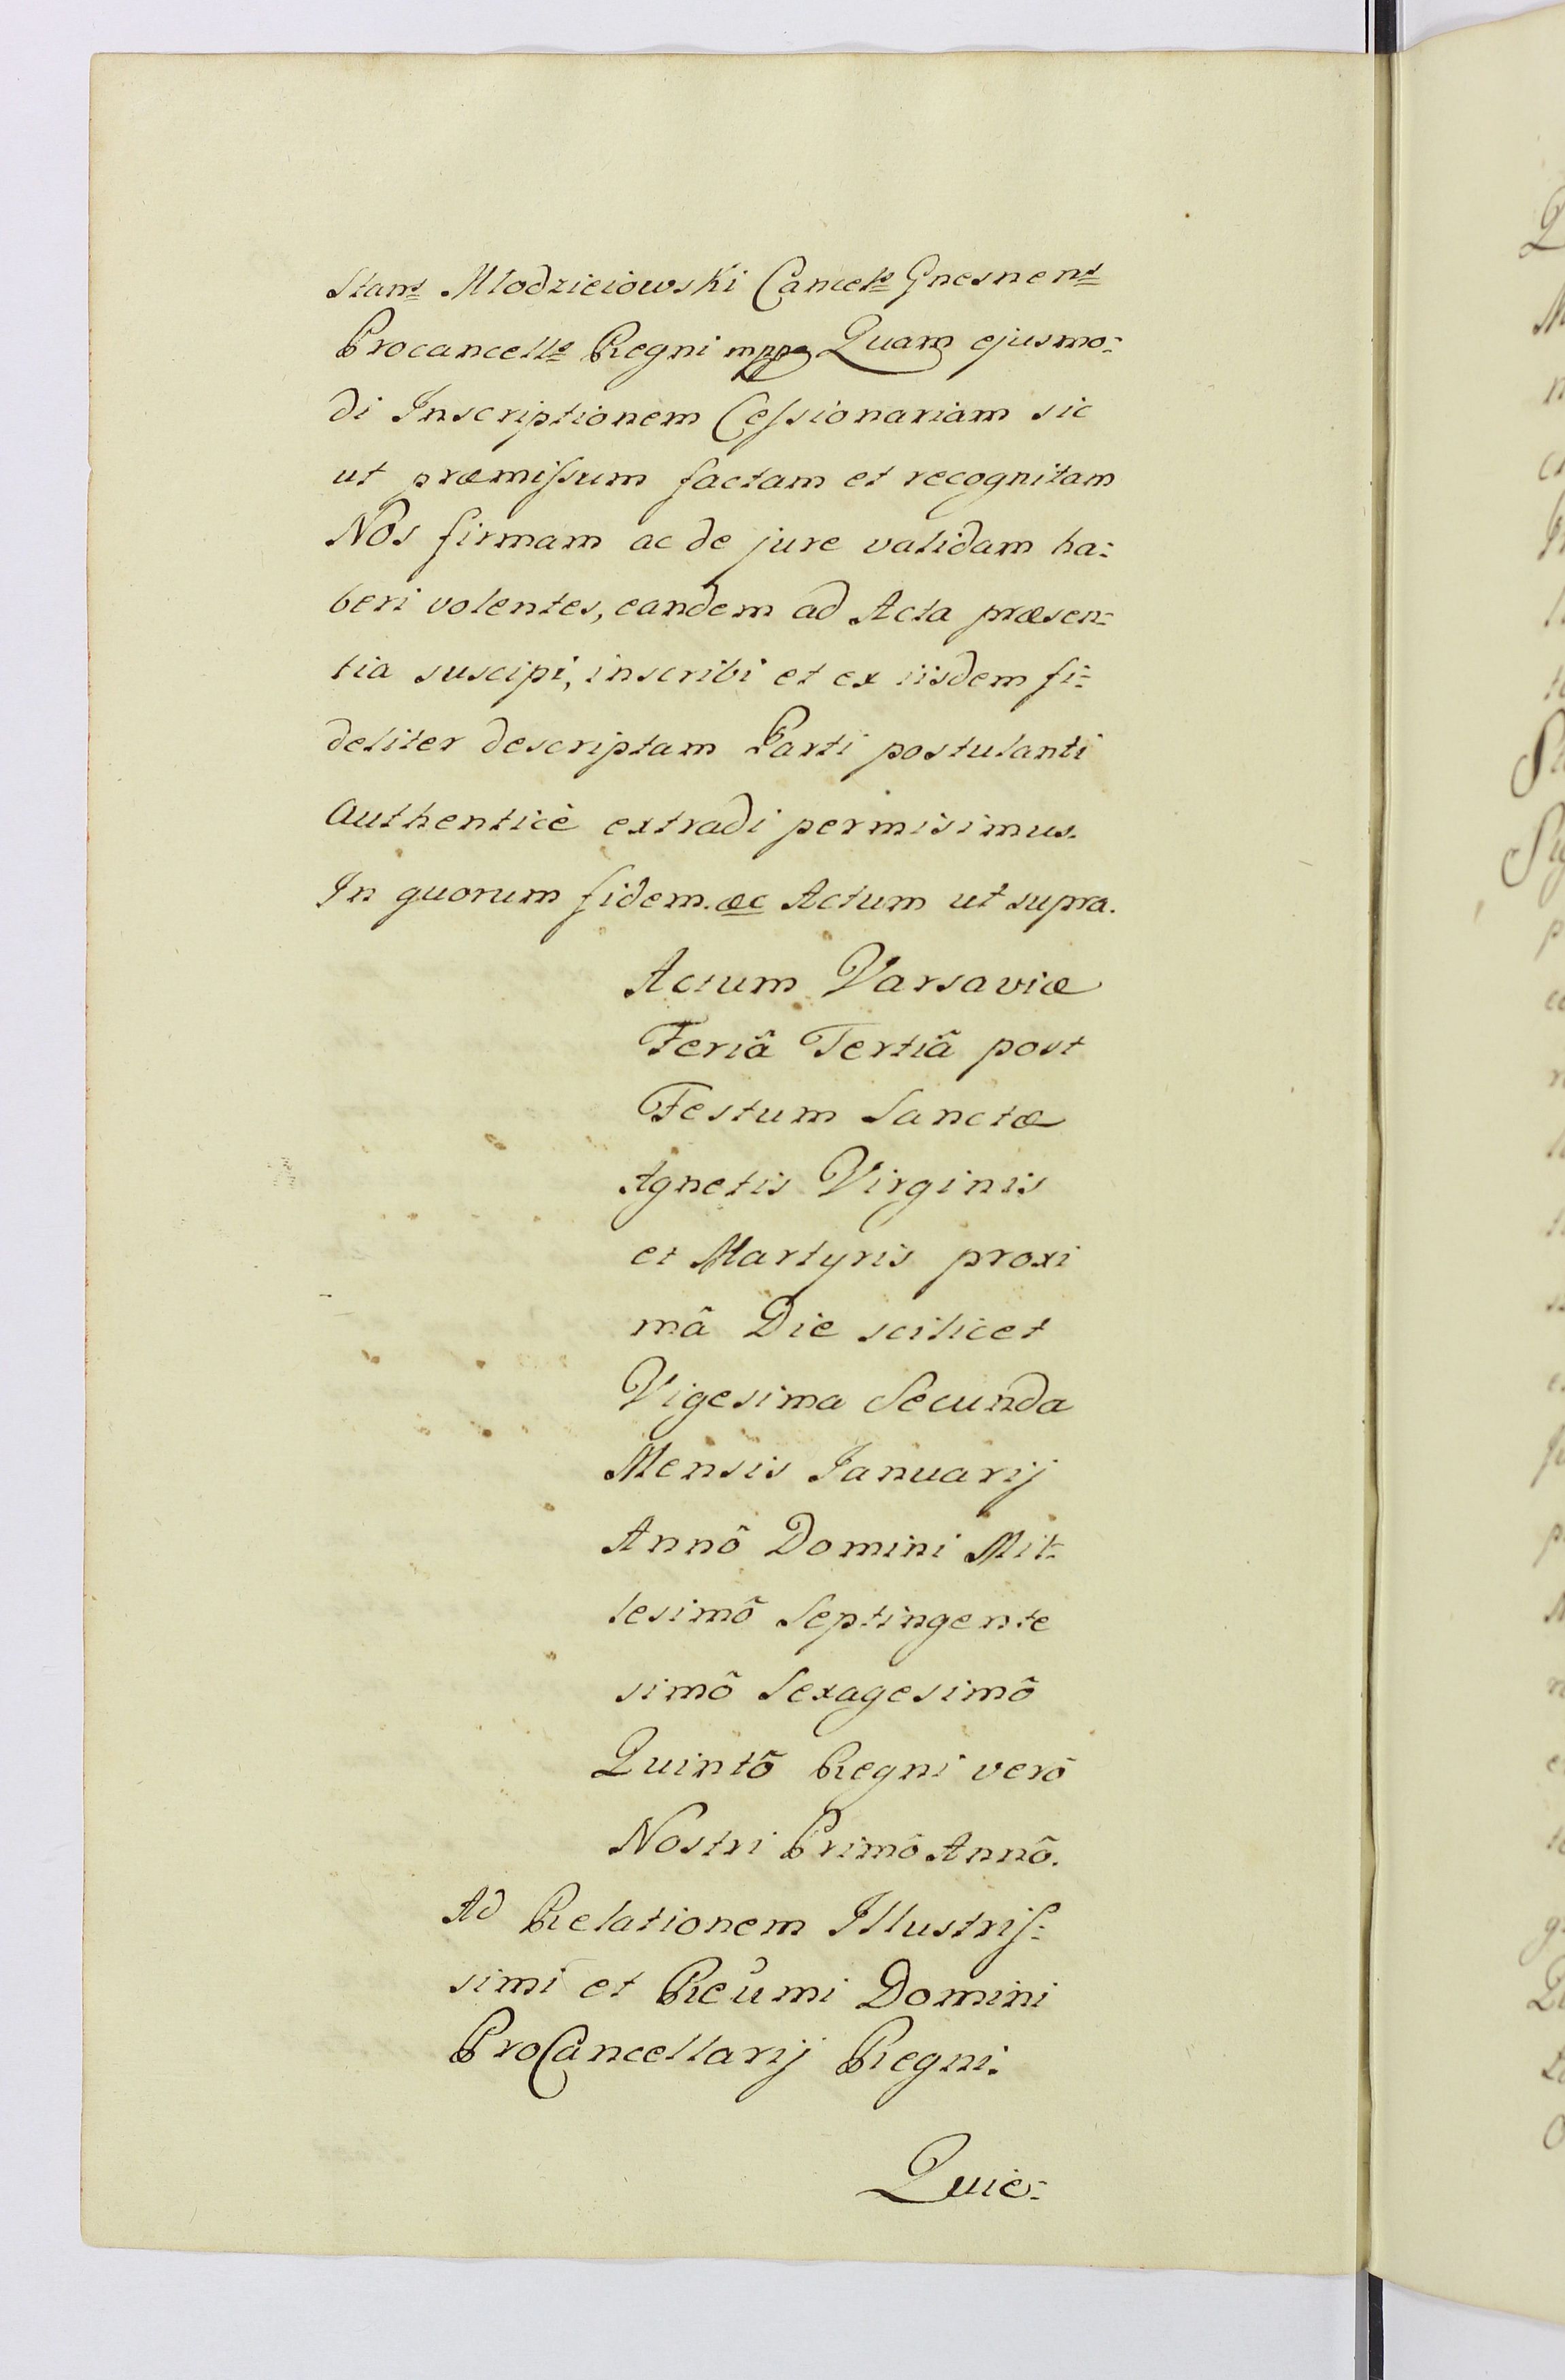 Stans Młodzieiowski Cancels Gnesnens
Procancells Regni mppa Quam ejusmo:
di Inscriptionem Cessionariam sic
ut præmissum factam et recognitam
Nos firmam ac de jure validam ha:
beri volentes, eandem ad Acta præsen:
tia suscipi, inscribi et ex iisdem fi:
deliter descriptam Parti postulanti
authenticè extradi permisimus.
In quorum fidem. &c Actum ut supra.
Actum Varsaviæ
Feriâ Tertiâ post
Festum Sanctæ
Agnetis Virginis
et Martyris proxi
mâ Die scilicet
Vigesima Secunda
Mensis Januarij
Annô Domini Mil:
lesimô Septingente
simô Sexagesimô
Quintô Regni verô
Nostri Primô Annô.
Ad Relationem Illustris:
simi et Reumi Domini
ProCancellarij Regni.
Quie: